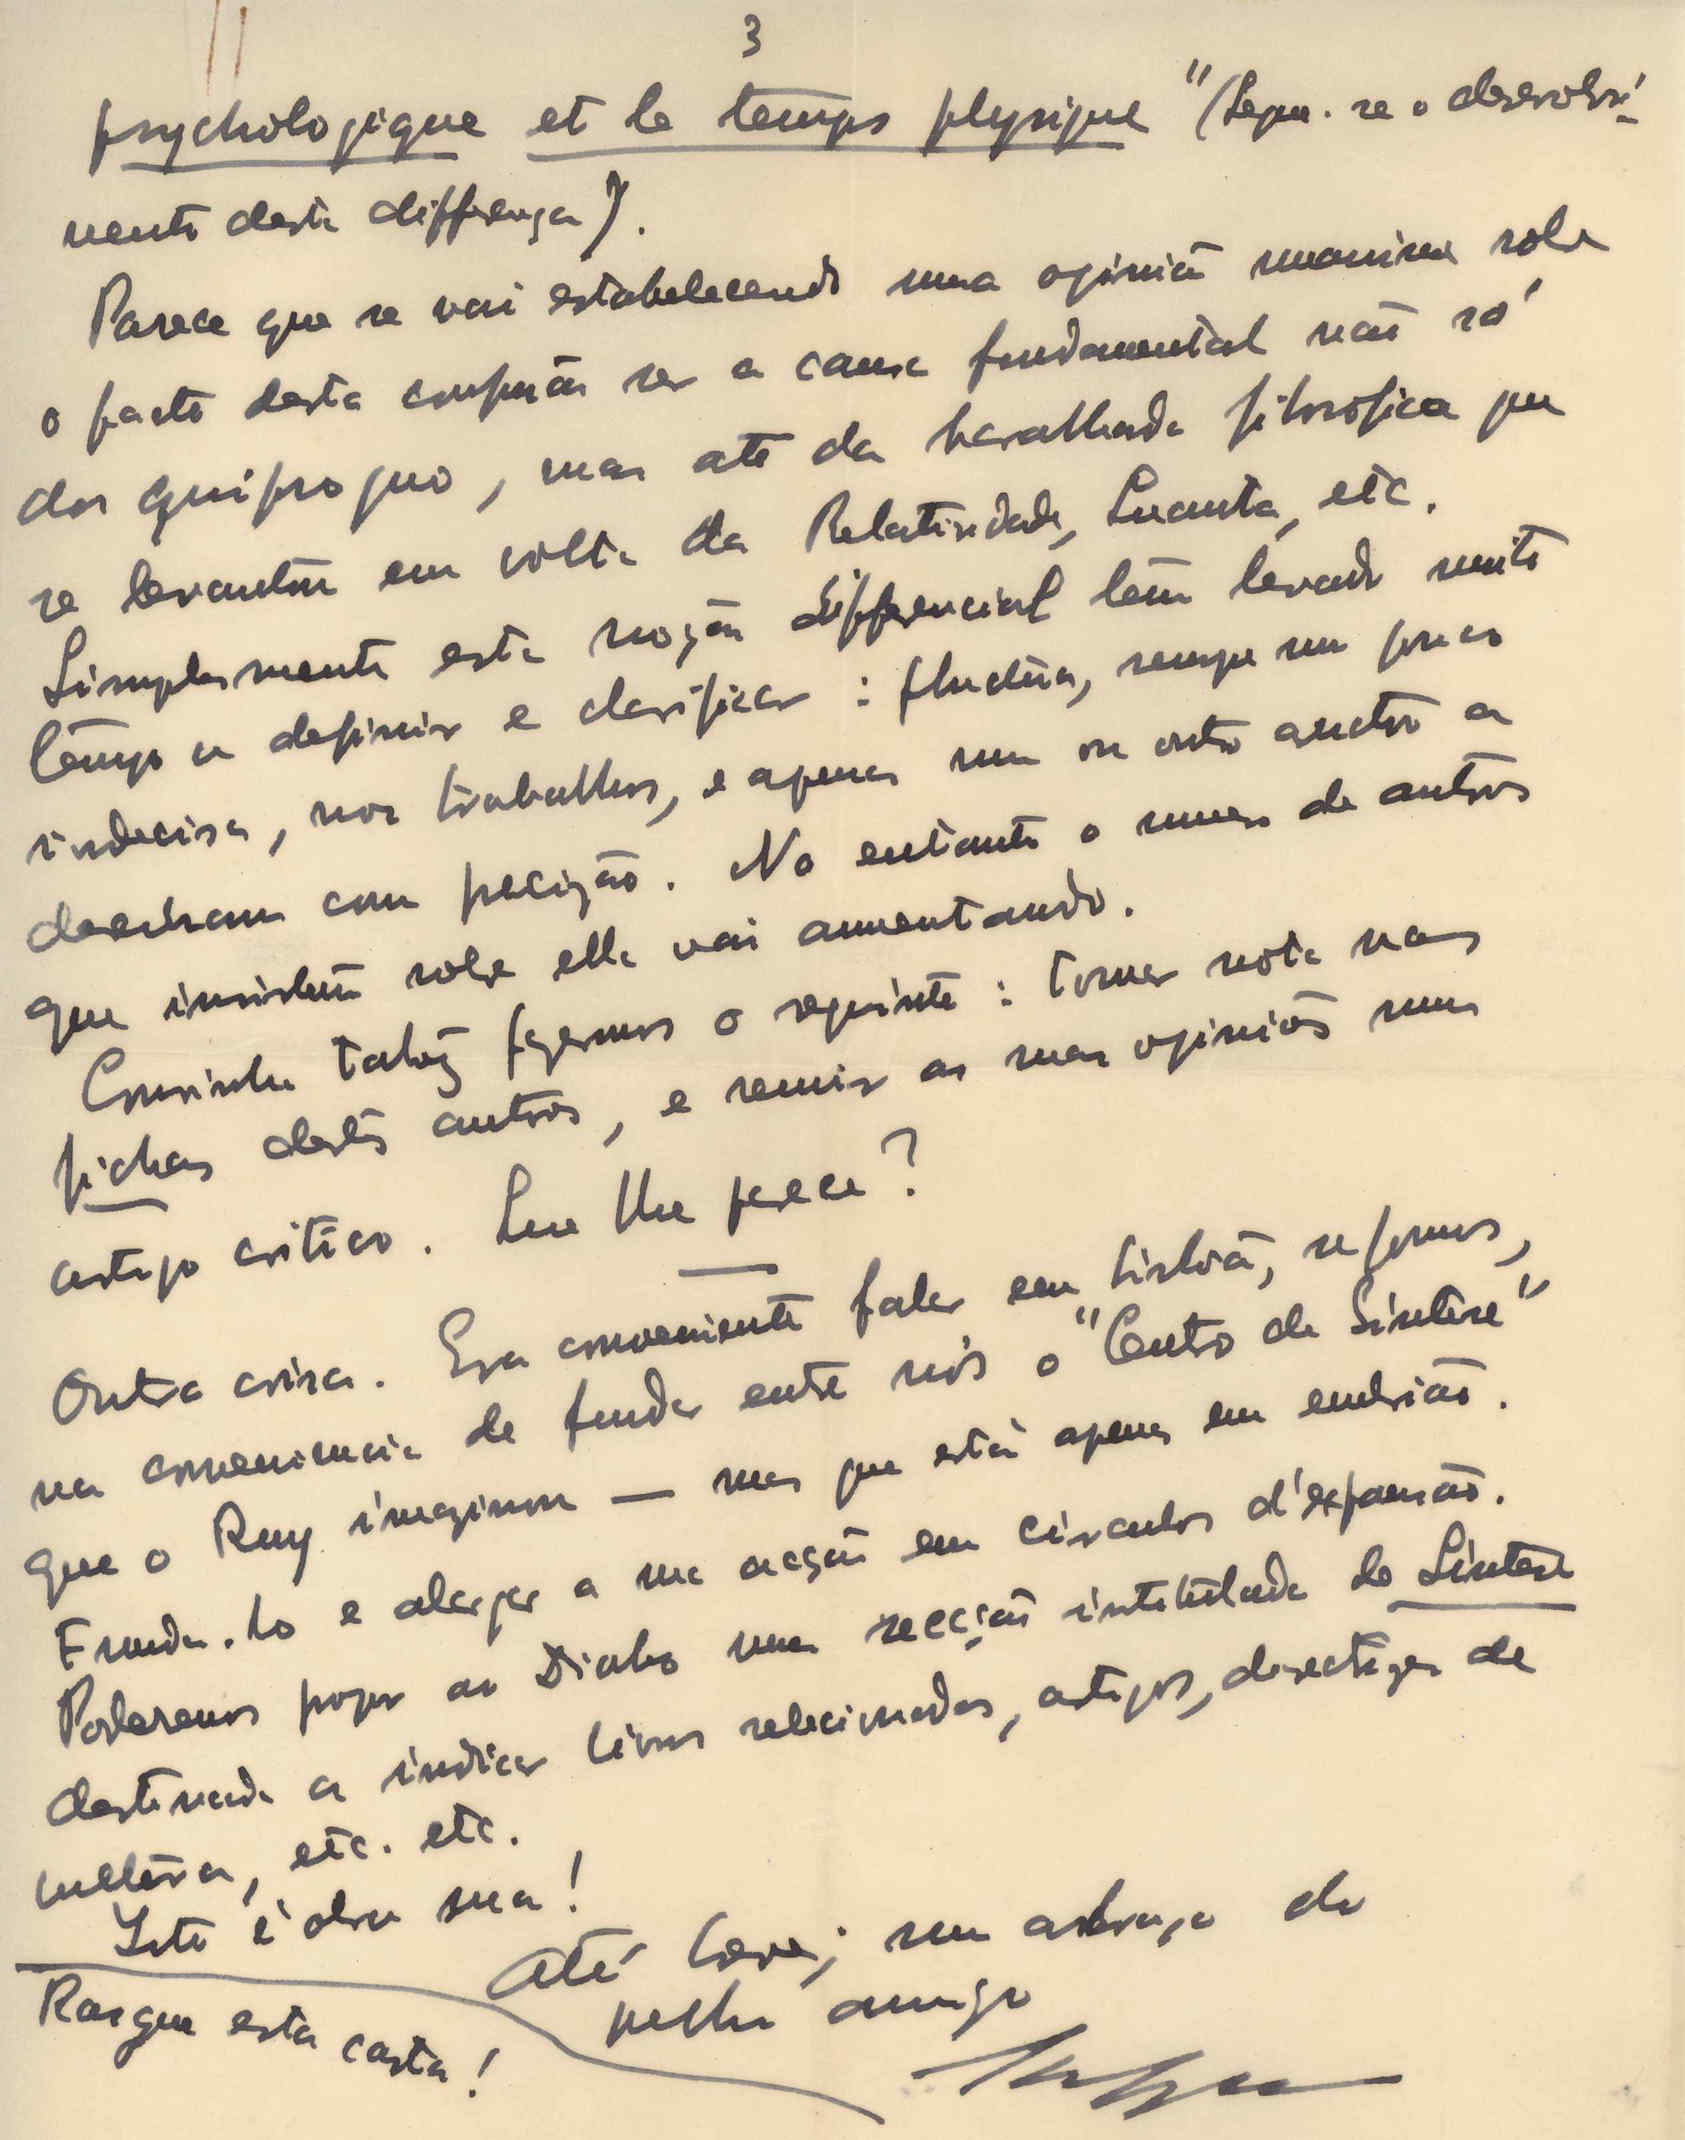 3
psychologique et le temps physique" (Segue-se o desenvolvi-
mento desta differença).
Parece que se vai estabelecendo uma opinião unanime sobre
o facto desta confusão ser a causa fundamental não só
dos quiproquo, mas até da baralhada filosofica que
se levantou em volta da Relatividade, Quanta, etc.
Simplesmente esta noção differencial tem levado muito
tempo a definir e clarificar: fluctua, sempre um pouco
indecisa, nos trabalhos, e apenas um ou outro auctor a
descrevem com precizão. No entanto o numero de autores
que insistem sobre ella vai aumentando.
Convinha talvez fazermos o seguinte: tomar nota nas
fichas destes autores, e reunir as suas opiniões num
artigo critico. Que lhe parece?
Outra coisa. Era conveniente falar em Lisboa, se formos,
na conveniencia de fundar entre nós o "Centro de Sintese"
que o Ruy imaginou — mas que está apenas em embrião.
Funda-lo e alargar a sua acção em circulos d'expansão.
Poderemos propor ao Diabo uma secção intitulada de Sintese
destinada a indicar livros relacionados, artigos, directrizes de
cultura, etc. etc.
Isto é obra sua!
Até breve; um abraço do
velho amigo
Rasgue esta carta!